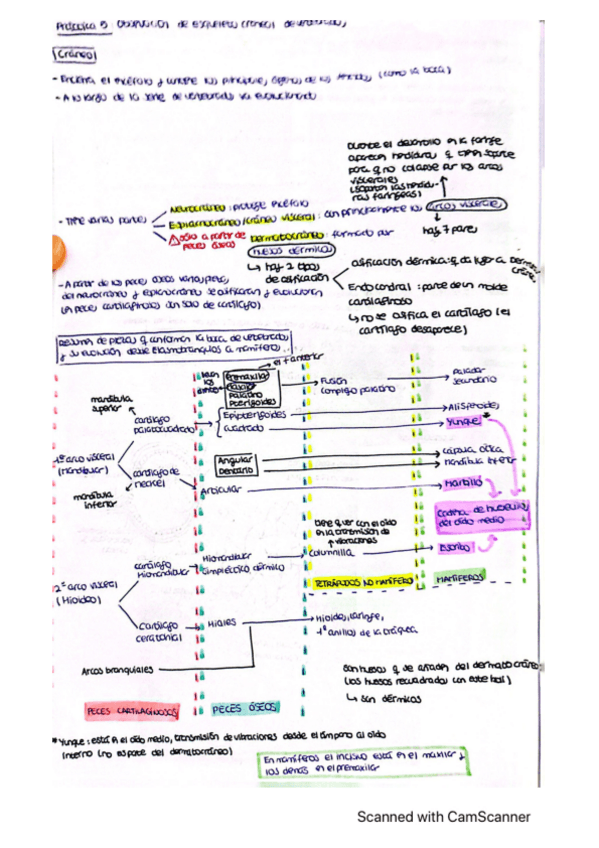 Práctica 5: Observación de esqueleto craneal de vertebrados
Cráneo
- Encierra el encéfalo y contiene los principales órganos de los sentidos (como la boca)
- A lo largo de la serie de vertebrados va evolucionando
durante el desarrollo en la faringe
aparecen hendiduras q tienen soporte
para q no colapse por los arcos
viscerales
(separan las hendidu-
ras faríngeas)
- Tiene varias partes
Neurocráneo: protege encéfalo
Esplacnocráneo/cráneo visceral: con principalmente los arcos viscerales
hay 7 pares
sólo a partir de
peces óseos
Dermatocráneo: formado por
huesos dérmicos
↳ hay 2 tipos
de osificación
osificación dérmica: q da lugar a dermatocráneo
Endocondral: parte de un molde
cartilaginoso
↳ no se osifica el cartílago (el
cartílago desaparece)
- A partir de los peces óseos varias partes
del neurocráneo y esplacnocráneo se osifican y evolucionan
(en peces cartilaginosos son solo de cartílago)
Resumen de piezas q conforman la boca de vertebrados
y su evolución desde elasmobranquios a mamíferos
el + anterior
Premaxilar
Maxilar
Palatino
Pterigoides
Fusión
complejo palatino
Paladar
secundario
mandíbula
superior
cartílago
palatocuadrado
Epipterigoides
Cuadrado
Alisfenoides
Yunque
1º arco visceral
(mandibular)
Angular
Dentario
cápsula ótica
mandíbula inferior
cartílago de
meckel
Articular
Martillo
mandíbula
inferior
cadena de huesecillos
del oído medio
tiene que ver con el oído
en la transmisión de
vibraciones
cartílago
Hiomandibular
Hiomandibular
Simpléctico, dérmico
Columnilla
Estribo
2º arco visceral
(Hioideo)
TETRÁPODOS NO MAMÍFERO
MAMÍFEROS
Cartílago
ceratohial
Hiales
Hioides, laringe,
1º anillos de la tráquea
Arcos branquiales
son huesos q se añaden del dermatocráneo
(los huesos recuadrados con este boli)
↳ son dérmicos
PECES CARTILAGINOSOS
PECES ÓSEOS
*Yunque: está en el oído medio, transmisión de vibraciones desde el tímpano al oído
interno (no es parte del dermatocráneo)
En mamíferos el incisivo está en el maxilar y
los demás en el premaxilar
Scanned with CamScanner